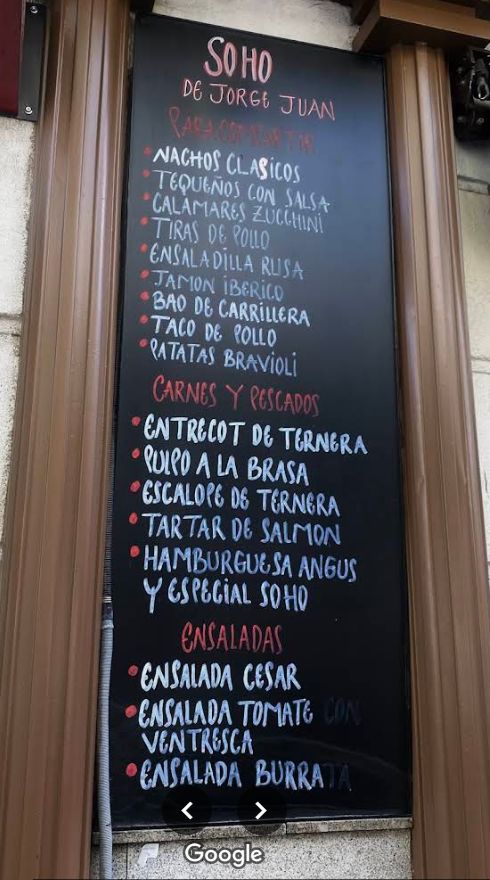 SOHO
DE JORGE JUAN
PARA COMPARTIR
• NACHOS CLASICOS
• TEQUEÑOS CON SALSA
• CALAMARES ZUCCHINI
• TIRAS DE POLLO
• ENSALADILLA RUSA
• JAMON IBERICO
• BAO DE CARRILLERA
• TACO DE POLLO
• PATATAS BRAVIOLI
CARNES Y PESCADOS
• ENTRECOT DE TERNERA
• PULPO A LA BRASA
• ESCALOPE DE TERNERA
• TARTAR DE SALMON
• HAMBURGUESA ANGUS
Y ESPECIAL SOHO
ENSALADAS
• ENSALADA CESAR
• ENSALADA TOMATE CON
VENTRESCA
• ENSALADA BURRATA
Google